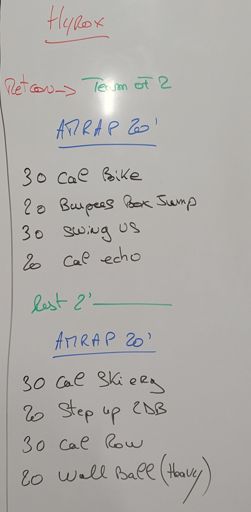 Hyrox
Metcon -> Team of 2
AMRAP 20'
30 Cal Bike
20 Burpees Box Jump
30 Swing US
20 Cal echo
Rest 2'
AMRAP 20'
30 Cal Ski erg
20 Step up 2DB
30 Cal Row
20 Wall Ball (Heavy)